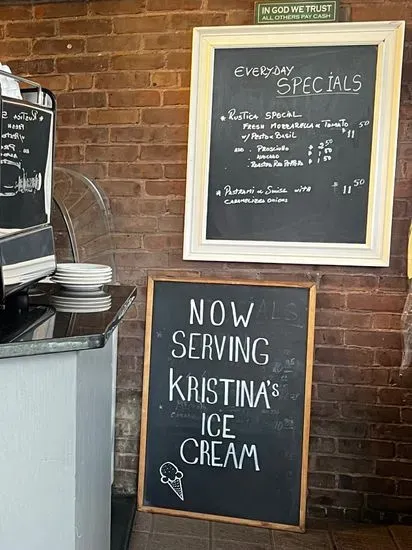 IN GOD WE TRUST
ALL OTHERS PAY CASH
EVERYDAY
SPECIALS
* RUSTICA SPECIAL
FRESH MOZZARELLA & TOMATO
w/ PESTO & BASIL $11.50
ADD PROSCIUTTO $2.50
AVOCADO $1.50
ROASTED RED PEPPERS $1.50
* PASTRAMI & SWISS WITH $11.50
CARAMELIZED ONIONS
NOW
SERVING
KRISTINA'S
ICE
CREAM